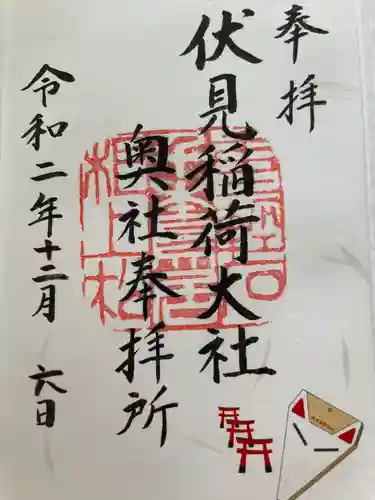 奉拝
伏見稲荷大社
奥社奉拝所
令和二年十二月 六日